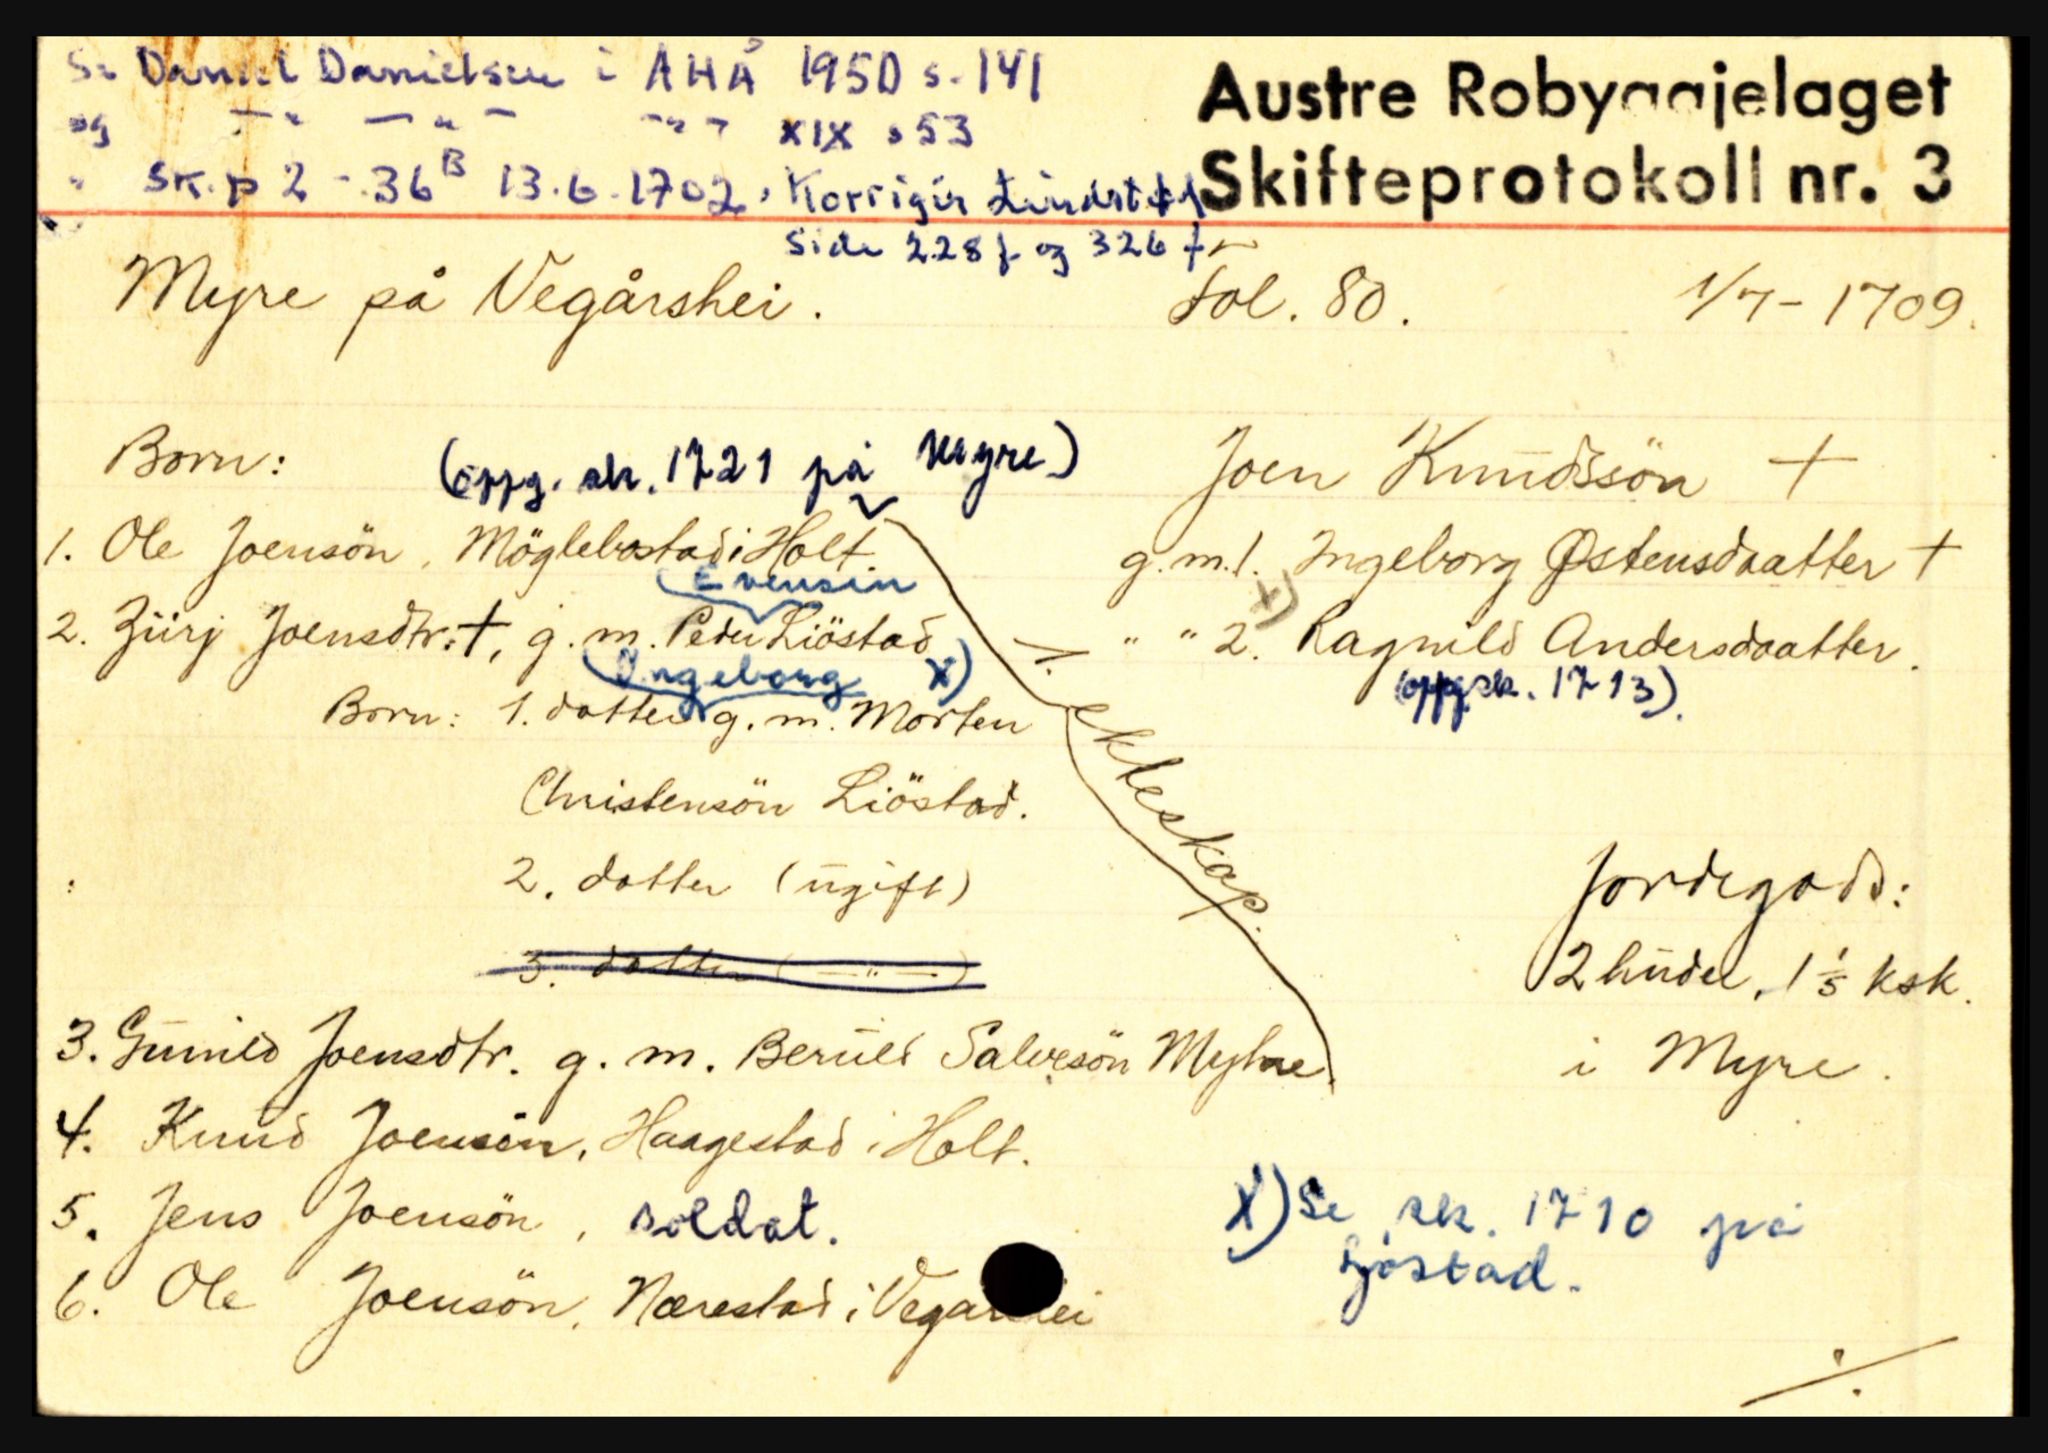 Se Daniel Danielsen i AHÅ 1950 s. 141
og —"— —"— —"— XIX s 53
" Sk.p 2 - 36B 13.6.1702, Korrigir Lindstøl
side 228 f og 326 f
Austre Robyggjelaget
Skifteprotokoll nr. 3
Myre på Vegårshei. fol. 80. 1/7 - 1709.
Born: (oppg. sk. 1721 på Myre)
Joen Knudssön +
1. Ole Joensön, Möglebostad i Holt.
g.m.1. Ingeborg Østensdaatter +
Evensön
2. Zürj Joensdtr. +, g. m. Peder Liöstad
÷ " " 2. x) Ragnild Andersdaatter.
(oppg sk. 1713).
Ingeborg x)
Born: 1. dotter g. m. Morten
Christensön Liöstad.
ekteskap.
2. dotter (ugift)
3. dotter (—"—)
Jordegods:
2 huder, 1 1/3 ksk.
i Myre.
3. Gunild Joensdtr. g. m. Beruld Salvesön Myhre.
4. Knud Joensön, Haagestad i Holt.
5. Jens Joensön, soldat.
6. Ole Joensön, Nærestad i Vegarshei
x) Se sk. 1710 på
Ljøstad.
÷